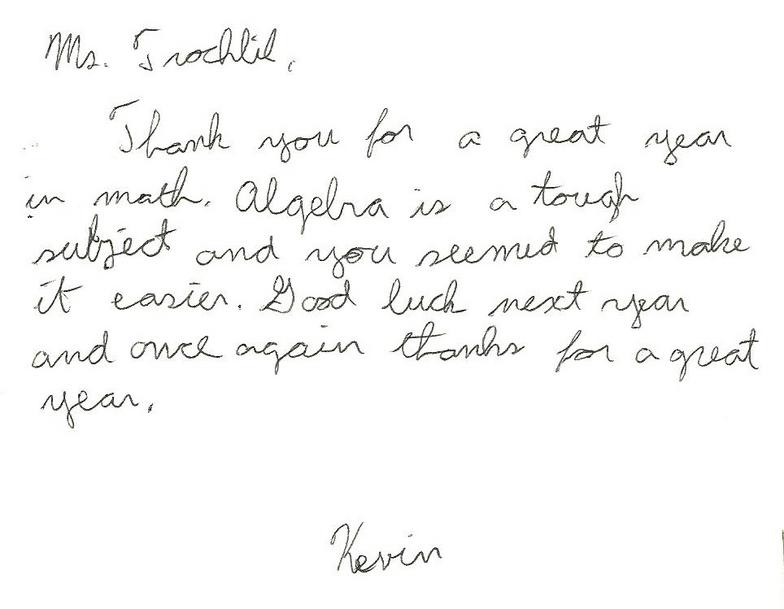 Ms. Trochlil,
Thank you for a great year
in math. Algebra is a tough
subject and you seemed to make
it easier. Good luck next year
and once again thanks for a great
year.
Kevin